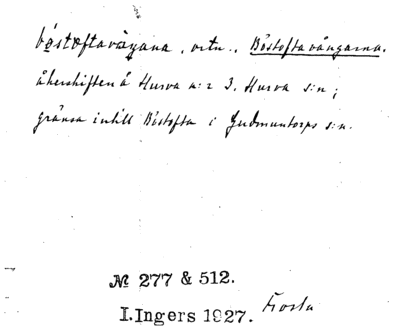 bǫ́stoftavą̀ŋana, ortn., Böstoftavångarna.
åkerskiften å Hurva n:r 3, Hurva s:n;
gränsa intill Böstofta i Gudmuntorps s:n.
№ 277 & 512.
I. Ingers 1927. Frosta